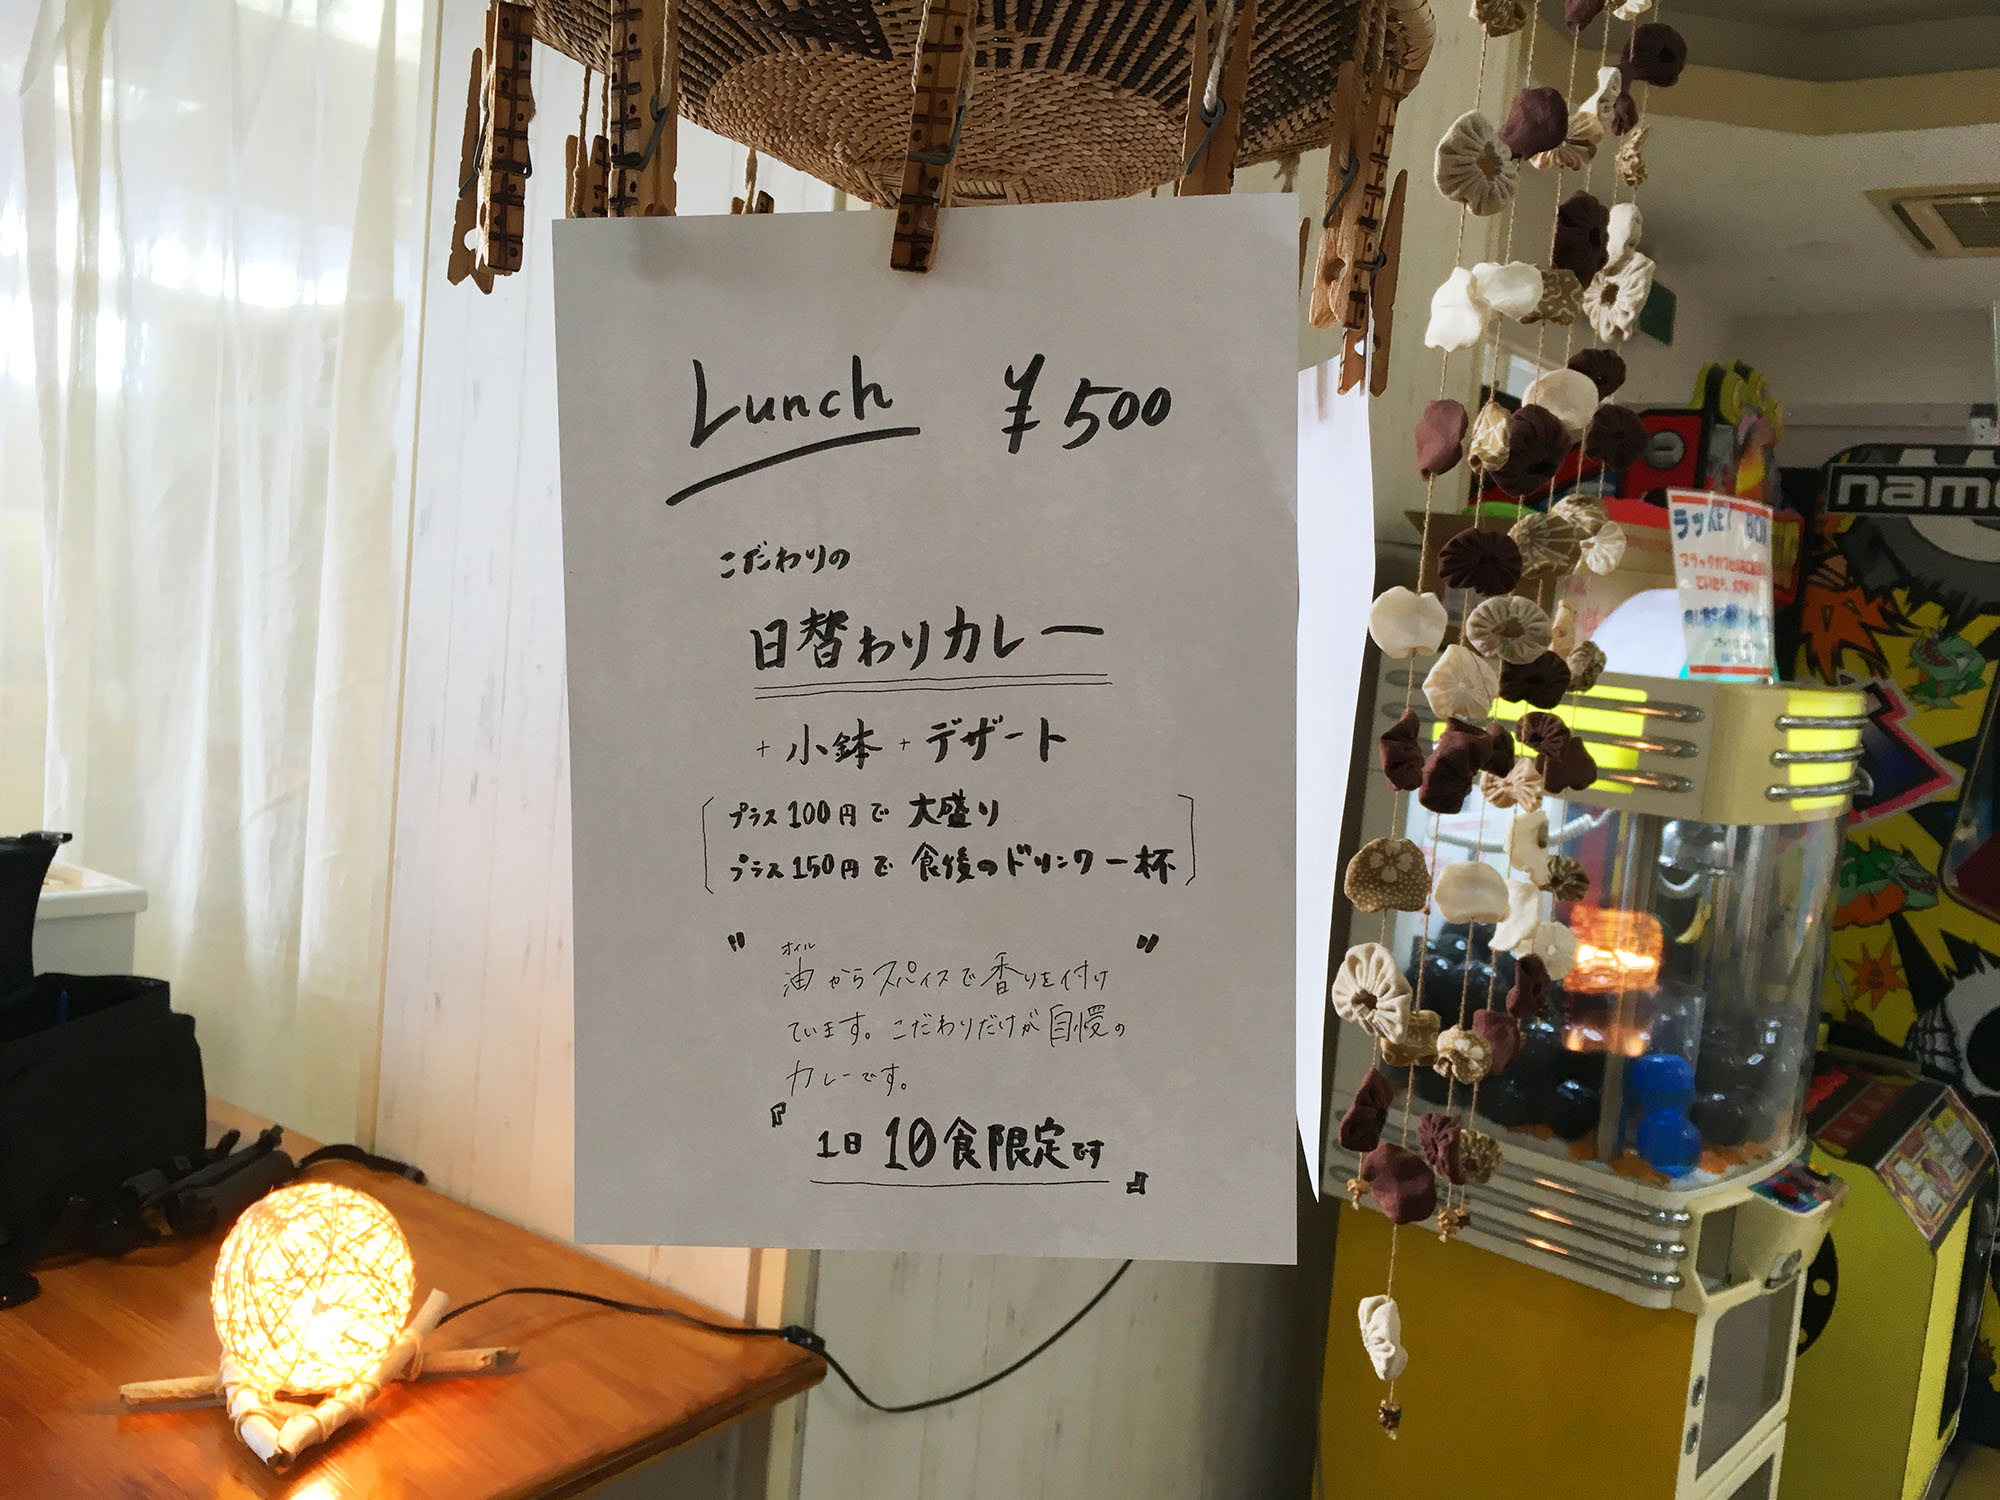 Lunch ¥500
こだわりの
日替わりカレー
+ 小鉢 + デザート
プラス100円で 大盛り
プラス150円で 食後のドリンク一杯
" オイル "
油からスパイスで香りを付け
ています。こだわりだけが自慢の
カレーです。
『 1日 10食限定です 』
ラッKEY BOX